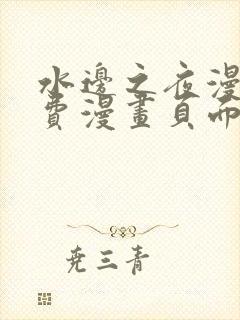 水邊之夜漫
費漫畫頁面
堯三青